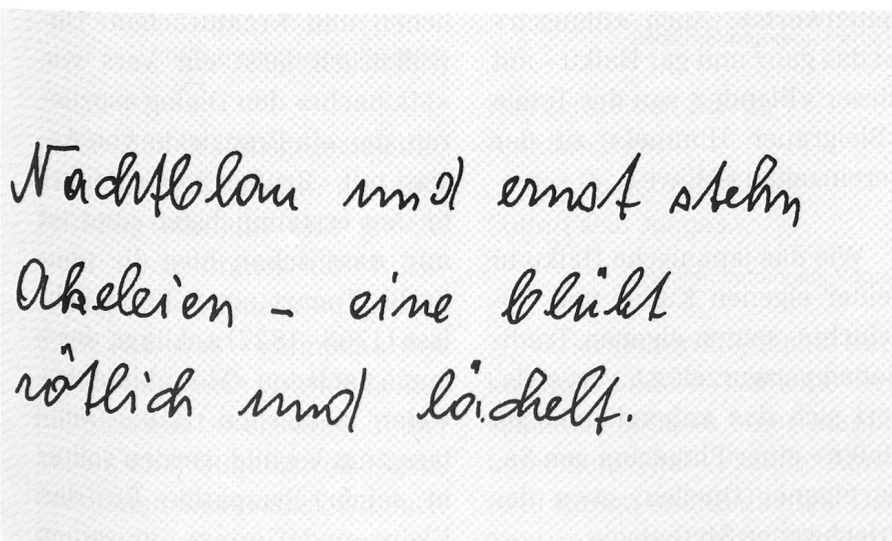 Nachtblau und ernst stehn
Akeleien - eine blüht
rötlich und lächelt.